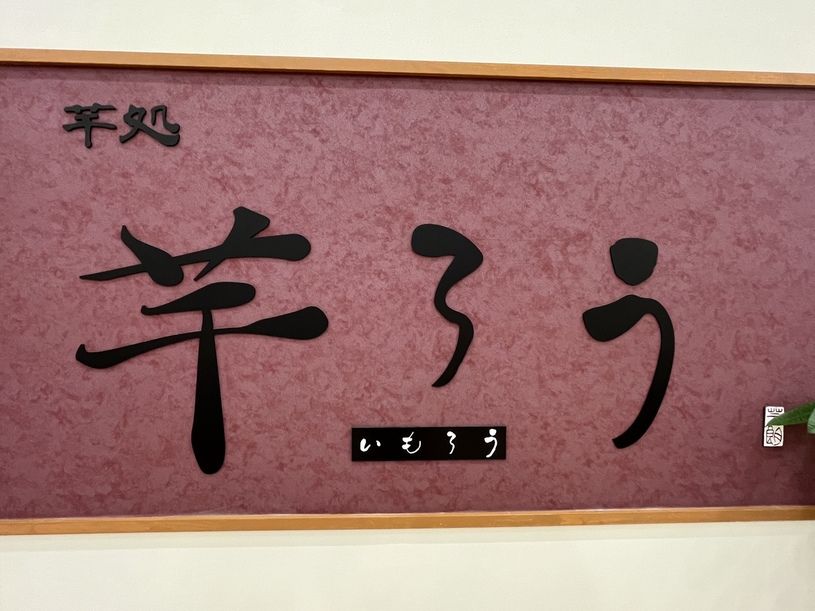 芋処
芋ろう
いもろう